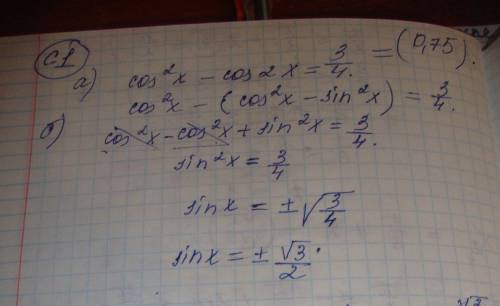 C1
а) cos²x − cos2x = 3/4. = (0,75).
cos²x − (cos²x − sin²x) = 3/4.
б) cos²x − cos²x + sin²x = 3/4.
sin²x = 3/4
sinx = ±√(3/4)
sinx = ± √3/2.
√3